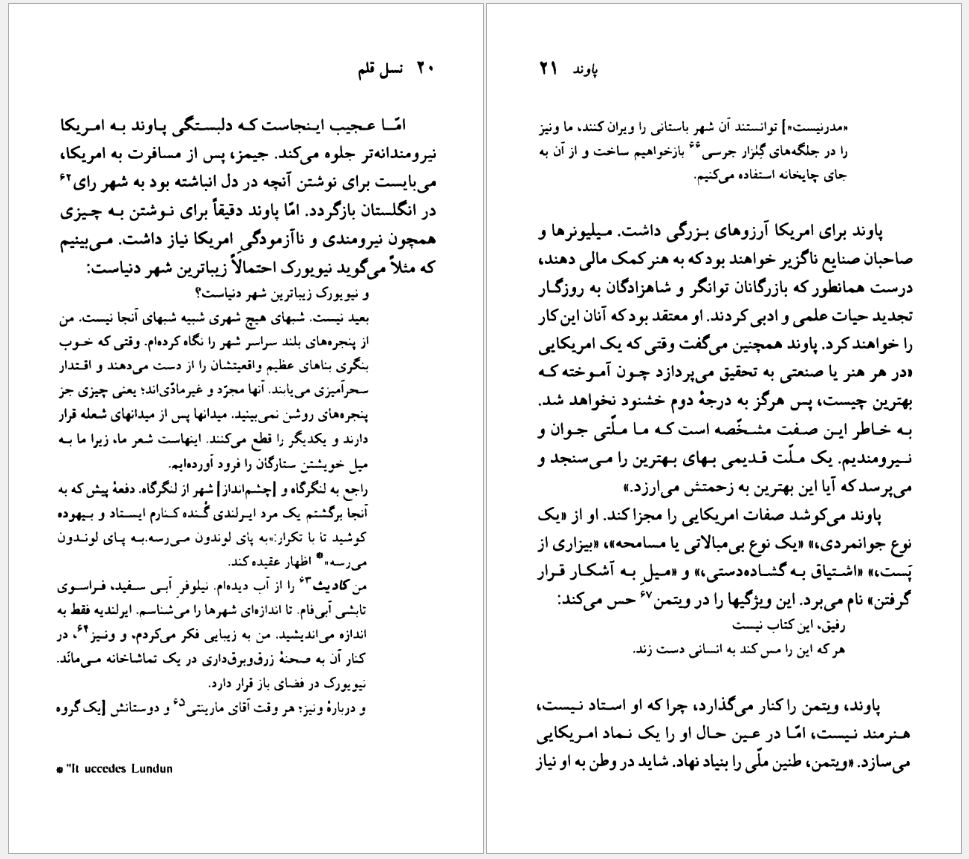 ۲۰ نسل قلم
امّا عجیب اینجاست که دلبستگی پاوند به امریکا
نیرومندانه‌تر جلوه می‌کند. جیمز، پس از مسافرت به امریکا،
می‌بایست برای نوشتن آنچه در دل انباشته بود به شهر رای۶۲
در انگلستان بازگردد. امّا پاوند دقیقاً برای نوشتن به چیزی
همچون نیرومندی و ناآزمودگیِ امریکا نیاز داشت. می‌بینیم
که مثلاً می‌گوید نیویورک احتمالاً زیباترین شهر دنیاست:
و نیویورک زیباترین شهر دنیاست؟
بعید نیست. شبهای هیچ شهری شبیه شبهای آنجا نیست. من
از پنجره‌های بلند سراسر شهر را نگاه کرده‌ام. وقتی که خوب
بنگری بناهای عظیم واقعیتشان را از دست می‌دهند و اقتدار
سحرآمیزی می‌یابند. آنها مجرّد و غیرمادّی‌اند؛ یعنی چیزی جز
پنجره‌های روشن نمی‌بینید. میدانها پس از میدانهای شعله قرار
دارند و یکدیگر را قطع می‌کنند. اینهاست شعر ما، زیرا ما به
میل خویشتن ستارگان را فرود آورده‌ایم.
راجع به لنگرگاه و [چشم‌انداز] شهر از لنگرگاه. دفعهٔ پیش که به
آنجا برگشتم یک مرد ایرلندی گُنده کنارم ایستاد و بیهوده
کوشید تا با تکرار:«به پای لوندون می‌رسه.به پای لوندون
می‌رسه»* اظهار عقیده کند.
من کادیث۶۳ را از آب دیده‌ام. نیلوفرِ آبی سفید، فراسوی
تابشی آبی‌فام. تا اندازه‌ای شهرها را می‌شناسم. ایرلندیه فقط به
اندازه می‌اندیشید. من به زیبایی فکر می‌کردم، و ونیز۶۴، در
کنار آن به صحنهٔ زرق‌وبرق‌داری در یک تماشاخانه می‌مانَد.
نیویورک در فضای باز قرار دارد.
و دربارهٔ ونیز؛ هر وقت آقای مارینتی۶۵ و دوستانش [یک گروه
* "It uccedes Lundun
پاوند ۲۱
«مدرنیست»] توانستند آن شهر باستانی را ویران کنند، ما ونیز
را در جلگه‌های گِلزار جرسی۶۶ بازخواهیم ساخت و از آن به
جای چایخانه استفاده می‌کنیم.
پاوند برای امریکا آرزوهای بزرگی داشت. میلیونرها و
صاحبان صنایع ناگزیر خواهند بود که به هنر کمک مالی دهند،
درست همانطور که بازرگانان توانگر و شاهزادگان به روزگار
تجدید حیات علمی و ادبی کردند. او معتقد بود که آنان این کار
را خواهند کرد. پاوند همچنین می‌گفت وقتی که یک امریکایی
«در هر هنر یا صنعتی به تحقیق می‌پردازد چون آموخته که
بهترین چیست، پس هرگز به درجهٔ دوم خشنود نخواهد شد.
به خاطر این صفت مشخّصه است که ما ملّتی جوان و
نیرومندیم. یک ملّت قدیمی بهای بهترین را می‌سنجد و
می‌پرسد که آیا این بهترین به زحمتش می‌ارزد.»
پاوند می‌کوشد صفات امریکایی را مجزا کند. او از «یک
نوع جوانمردی،» «یک نوع بی‌مبالاتی یا مسامحه»، «بیزاری از
پَست،» «اشتیاق به گشاده‌دستی،» و «میلِ به آشکار قرار
گرفتن» نام می‌برد. این ویژگیها را در ویتمن۶۷ حس می‌کند:
رفیق، این کتاب نیست
هر که این را مس کند به انسانی دست زند.
پاوند، ویتمن را کنار می‌گذارد، چرا که او استاد نیست،
هنرمند نیست، امّا در عین حال او را یک نماد امریکایی
می‌سازد. «ویتمن، طنین ملّی را بنیاد نهاد. شاید در وطن به او نیاز